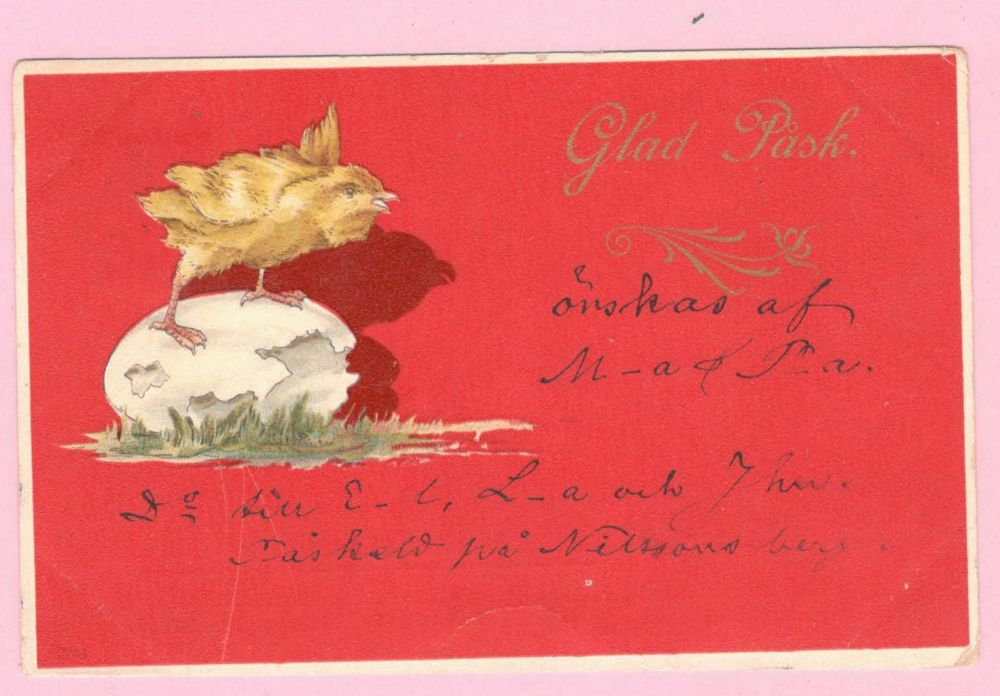 Glad Påsk.
önskas af
M-a & P-a.
Dº till E-t, L-a och
Påskeld på Nilssons berg.